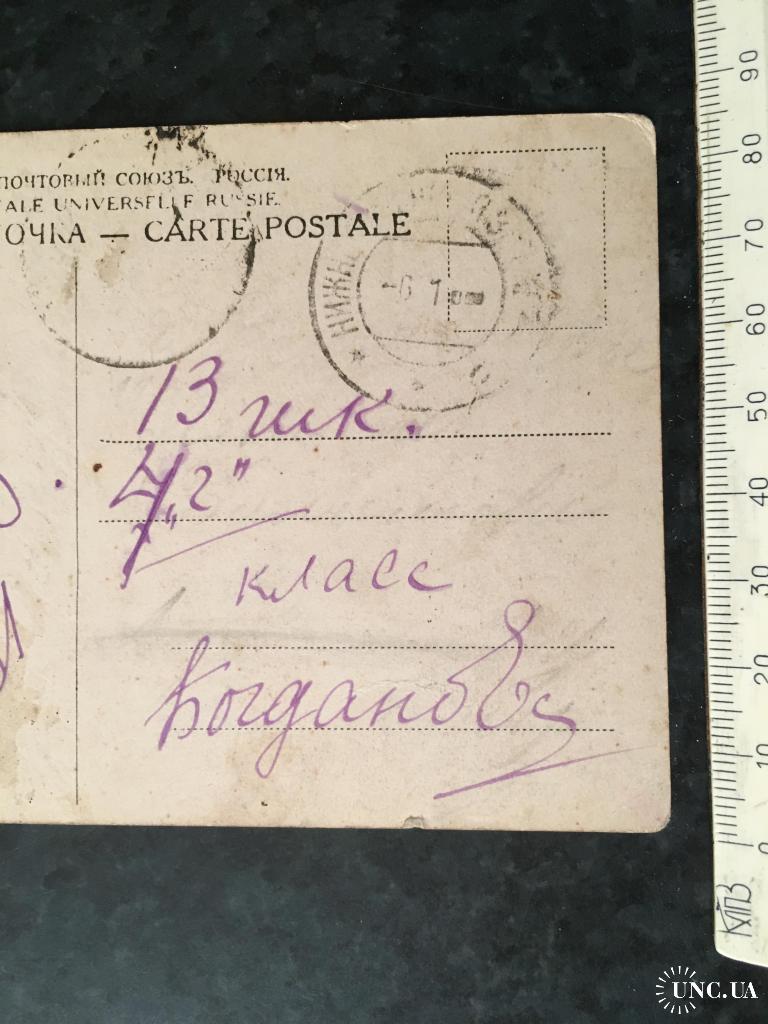 ПОЧТОВЫЙ СОЮЗЪ. РОССІЯ.
ALE UNIVERSELLE RUSSIE.
ОЧКА — CARTE POSTALE
НИЖН
-6 1
13 шк.
4 „г"
класс
Богданов
90
80
70
60
50
40
30
20
10
0
МПЗ
UNC.UA